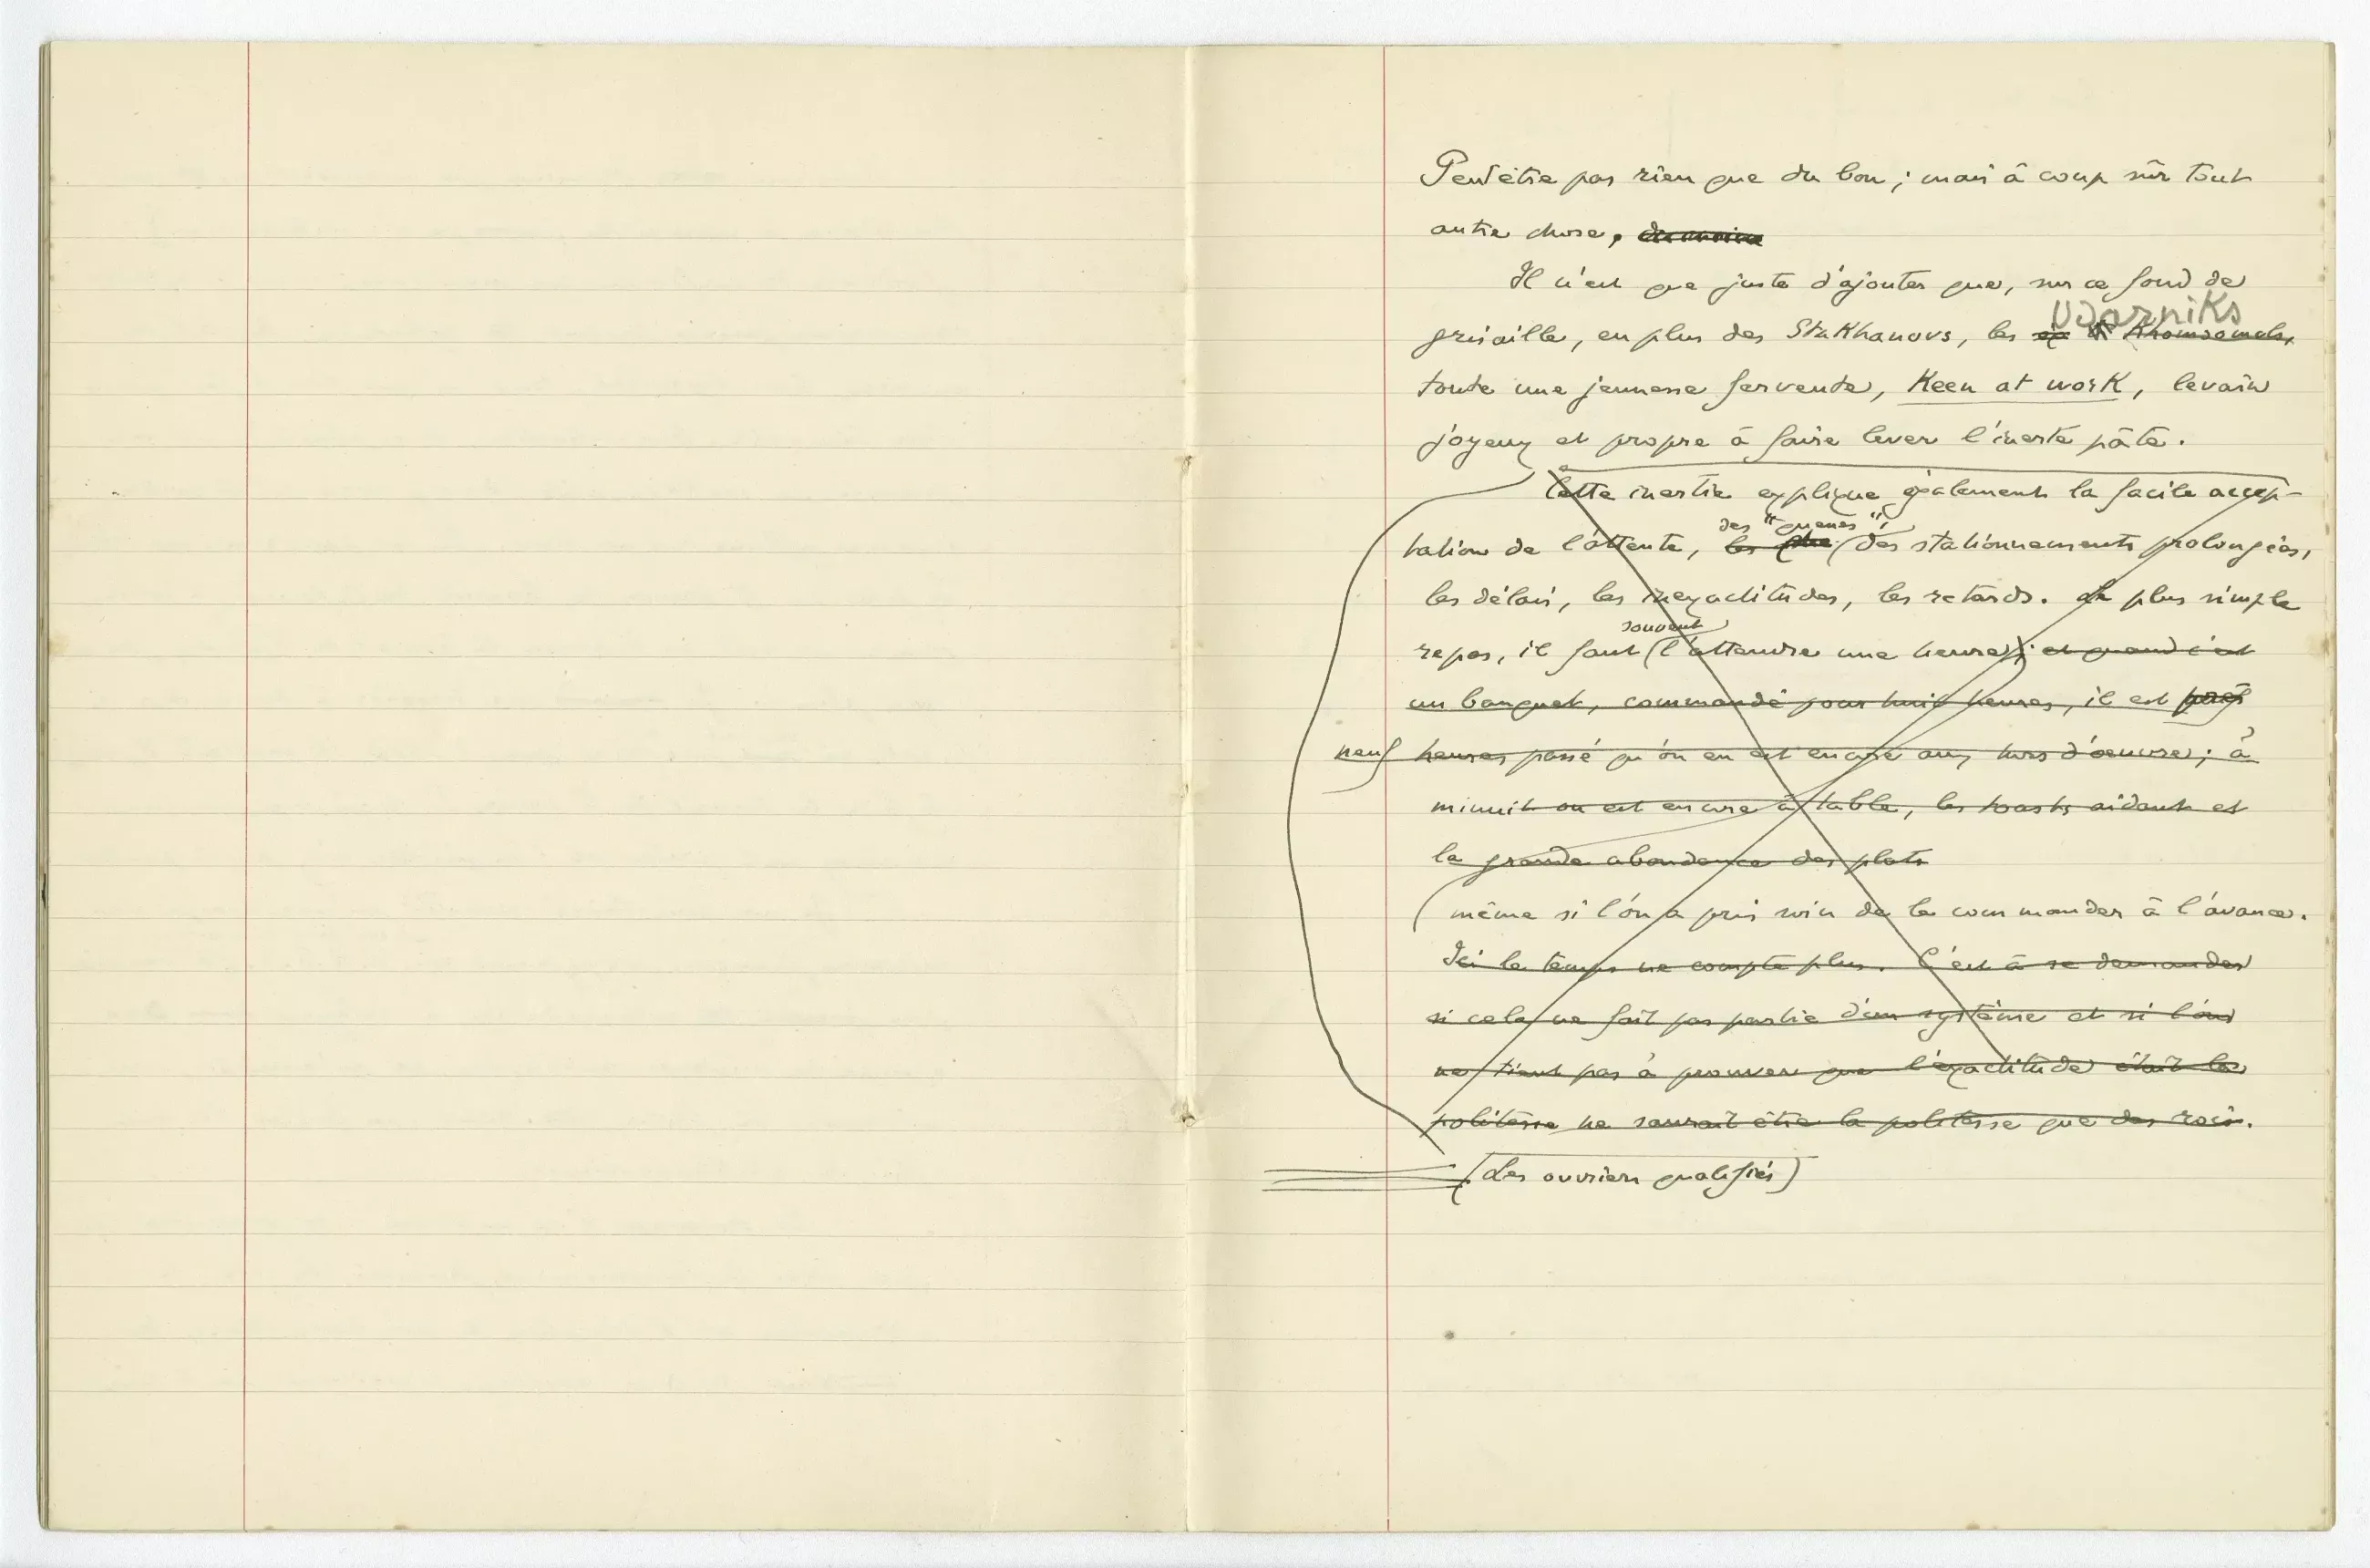 Peut être pas rien que du bon ; mais à coup sûr tout
autre chose.
Il n'est que juste d'ajouter que, sur ce fond de
Udarniks
grisaille, en plus des Stakhanovs, les Khomsomols,
toute une jeunesse fervente, Keen at work, levain
joyeux et propre à faire lever l'inerte pâte.
Cette inertie explique également la facile accep-
des "queues",
tation de l'attente, les des stationnements prolongés,
les délais, les inexactitudes, les retards. Le plus simple
souvent
repas, il faut l'attendre une heure ; et quand c'est
un banquet, commandé pour huit heures, il est
neuf heures passé qu'on en est encore aux hors d'œuvre ; à
minuit on est encore à table, les toasts aidant et
la grande abondance des plats
(même si l'on a pris soin de le commander à l'avance.
Ici le temps ne compte plus. C'est à se demander
si cela ne fait pas partie d'un système et si l'on
ne tient pas à prouver que l'exactitude était la
politesse ne saurait être la politesse que des rois.
(Les ouvriers qualifiés)